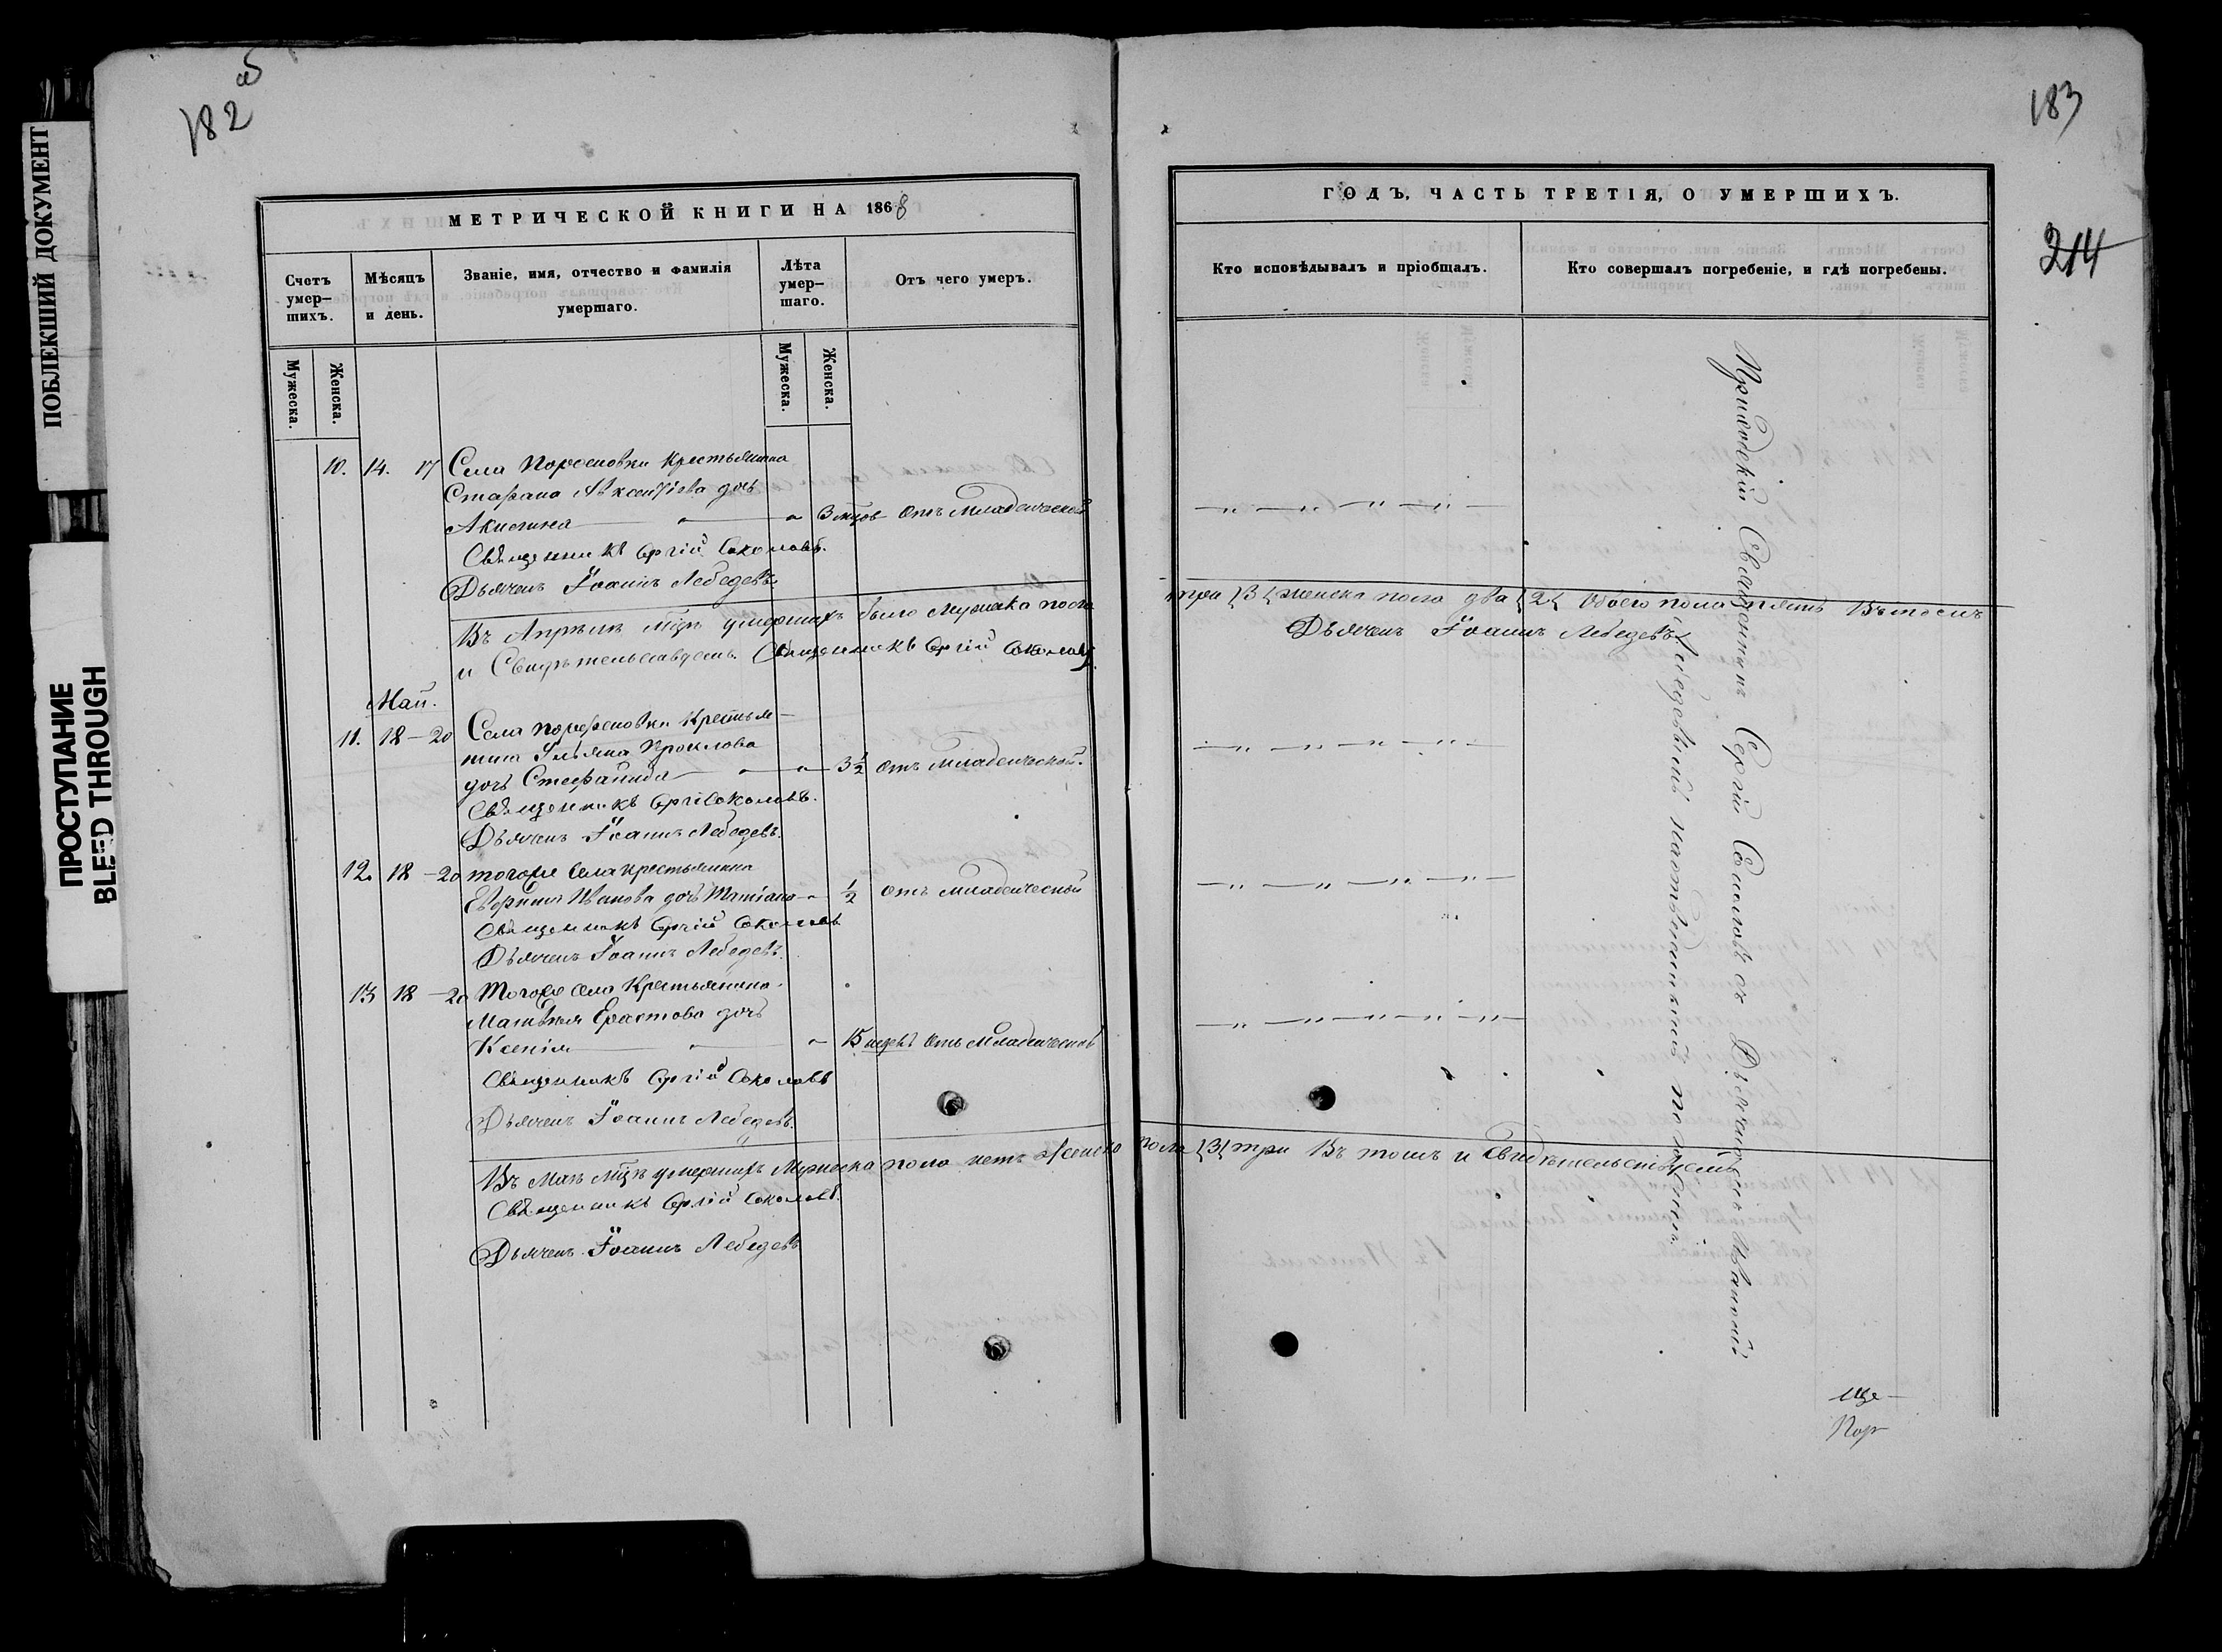 ПОБЛЕКШИЙ ДОКУМЕНТ
ПРОСТУПАНИЕ
BLEED THROUGH
182 об
МЕТРИЧЕСКОЙ КНИГИ НА 1868
Счетъ умер-шихъ.
Мѣсяцъ и день.
Званіе, имя, отчество и фамилія умершаго.
Лѣта умер-шаго.
Отъ чего умеръ.
Мужеска.
Женска.
Мужеска.
Женска.
10. 14. 17 Села Крестьянина
Стефана Авксентіева дочь
Акилина 3 мцовъ Отъ Младенческой
Священникъ Сергій Соколовъ.
Дьячекъ Іоаннъ Лебедевъ
Въ Апрѣлѣ мцѣ умершихъ было Мужска пола
и Свидѣтельствуемъ. Священникъ Сергій Соколовъ.
Май.
11. 18 – 20 Села Крестья-
нина Проклова
дочь Стефанида 3½ отъ Младенческой.
Священникъ Сергій Соколовъ.
Дьячекъ Іоаннъ Лебедевъ.
12. 18 – 20 тогоже Села крестьянина
Иванова дочь Татіана ½ отъ младенческой
Священникъ Сергій Соколовъ
Дьячекъ Іоаннъ Лебедевъ.
13 18 – 20 Тогоже села Крестьянина
Матвея Ерастова дочь
Ксенія 15 Отъ Младенческой
Священникъ Сергій Соколовъ
Дьячекъ Іоаннъ Лебедевъ.
Въ Маѣ мцѣ умершихъ Мужеска пола нетъ Женска
Священникъ Сергій Соколовъ.
Дьячекъ Іоаннъ Лебедевъ
183
214
ГОДЪ, ЧАСТЬ ТРЕТІЯ, О УМЕРШИХЪ.
Кто исповѣдывалъ и пріобщалъ.
Кто совершалъ погребеніе, и гдѣ погребены.
три {3{ женска пола два {2{ Обоего пола пять Въ томъ
Дьячекъ Іоаннъ Лебедевъ
пола {3{ три Въ томъ и Свидѣтельствуемъ
Приходскій Священникъ Сергій Соколовъ съ Дьячкомъ Іоанномъ
Лебедевымъ на кладбищѣ